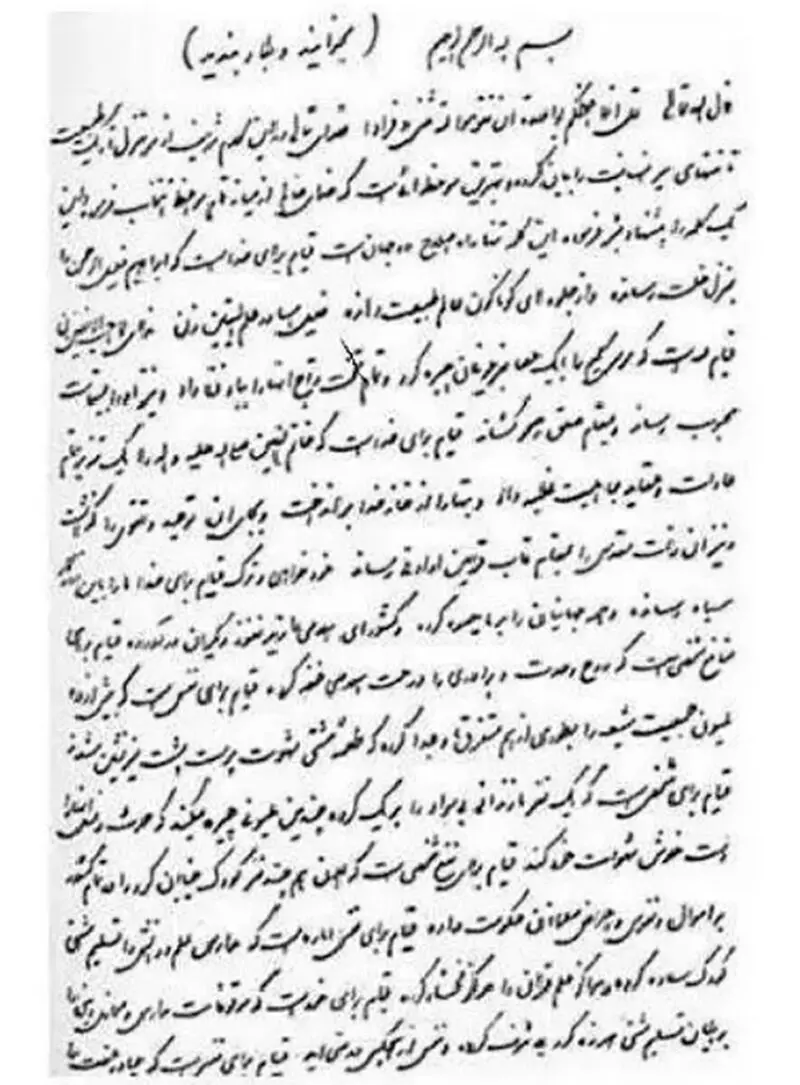 بسم الله الرحمن الرحیم (بخوانید و بکار بندید)
قال الله تعالی قل انما اعظکم بواحدة ان تقوموا لله مثنی و فرادا خدای تعالی در این کلام شریف از سر منزل تاریک طبیعت
تا منتهای سیر انسانیت را بیان کرده و بهترین موعظه‌ائی است که خدای عالم از میانه تمام مواعظ انتخاب فرموده و این
یک کلمه را پیشنهاد بشر فرموده این کلمه تنها راه اصلاح دو جهان است قیام برای خدا است که ابراهیم خلیل الرحمن را
بمنزل خلت رسانده و از جلوه‌های گوناگون عالم طبیعت رهانده خلیل آسا در علم الیقین زن ندای لا احب الافلین زن
قیام لله است که موسی کلیم را با یک عصا بفرعونیان چیره کرد و تمام تخت و تاج آنها را بباد فنا داد و نیز او را بمیقات
محبوب رساند و بمقام صعق و صحو کشاند قیام برای خدا است که خاتم النبیین صلی الله علیه و اله را یک تنه بر تمام
عادات و عقاید جاهلیت غلبه داد و بتها را از خانه خدا برانداخت و بجای آن توحید و تقوی را گذاشت
و نیز آن ذات مقدس را بمقام قاب قوسین او ادنی رساند خودخواهی و ترک قیام برای خدا ما را باین روزگار
سیاه رسانده و همه جهانیان را بر ما چیره کرده و کشورهای اسلامی را زیر نفوذ دیگران درآورده قیام برای
منافع شخصی است که روح وحدت و برادری را در ملت اسلامی خفه کرده قیام برای نفس است که بیش از ده
ملیون جمعیت شیعه را بطوری از هم متفرق و جدا کرده که طعمه مشتی شهوت پرست پشت میز نشین شدند
قیام برای شخص است که یک نفر مازندرانی بیسواد را بر یک گروه چندین ملیونی چیره میکند که حرث و نسل آنها را
دست خوش شهوات خود کند قیام برای نفع شخصی است که الان هم چند نفر کودک خیابان گرد را در تمام کشور
بر اموال و نفوس و اعراض مسلمانان حکومت داده قیام برای نفس اماره است که مدارس علم و دانش را تسلیم مشتی
کودک ساده کرده و مراکز علم قرآن را مرکز فحشاء کرده قیام برای خود است که موقوفات مدارس و محافل دینی را
برایگان تسلیم مشتی هرزه گرد بی شرف کرده و نفس از هیچکس در نمی‌آید قیام برای نفس است که چادر عفت را